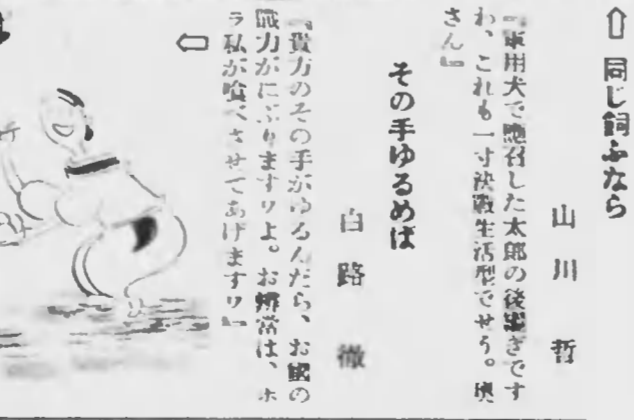 ⇧ 同じ飼ふなら
山川 哲
『軍用犬で應召した太郎の後繼ぎです
わ、これも一寸決戰生活型でせう。奥
さん』
その手ゆるめば
白路 徹
『貴方のその手がゆるんだら、お國の
戰力がにぶりますワよ。お辨當は、ホ
ラ私が喰べさせてあげますワ』
⇦